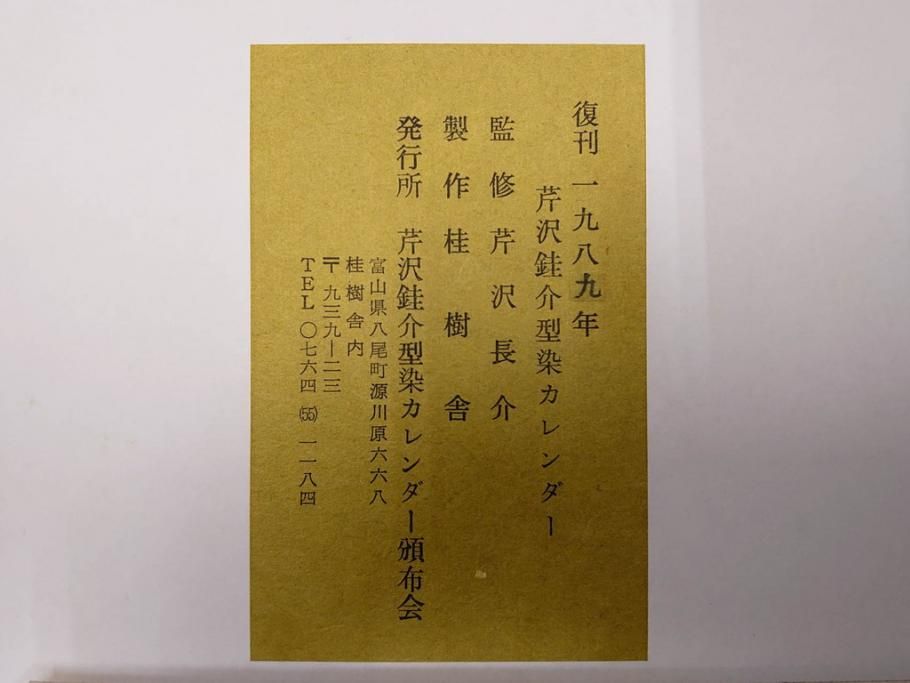 復刊 一九八九年
芹沢銈介型染カレンダー
監修 芹沢長介
製作 桂樹舎
発行所 芹沢銈介型染カレンダー頒布会
富山県八尾町源川原六六八
桂樹舎内
〒九三九ー二三
TEL 〇七六四 (55) 一一八四